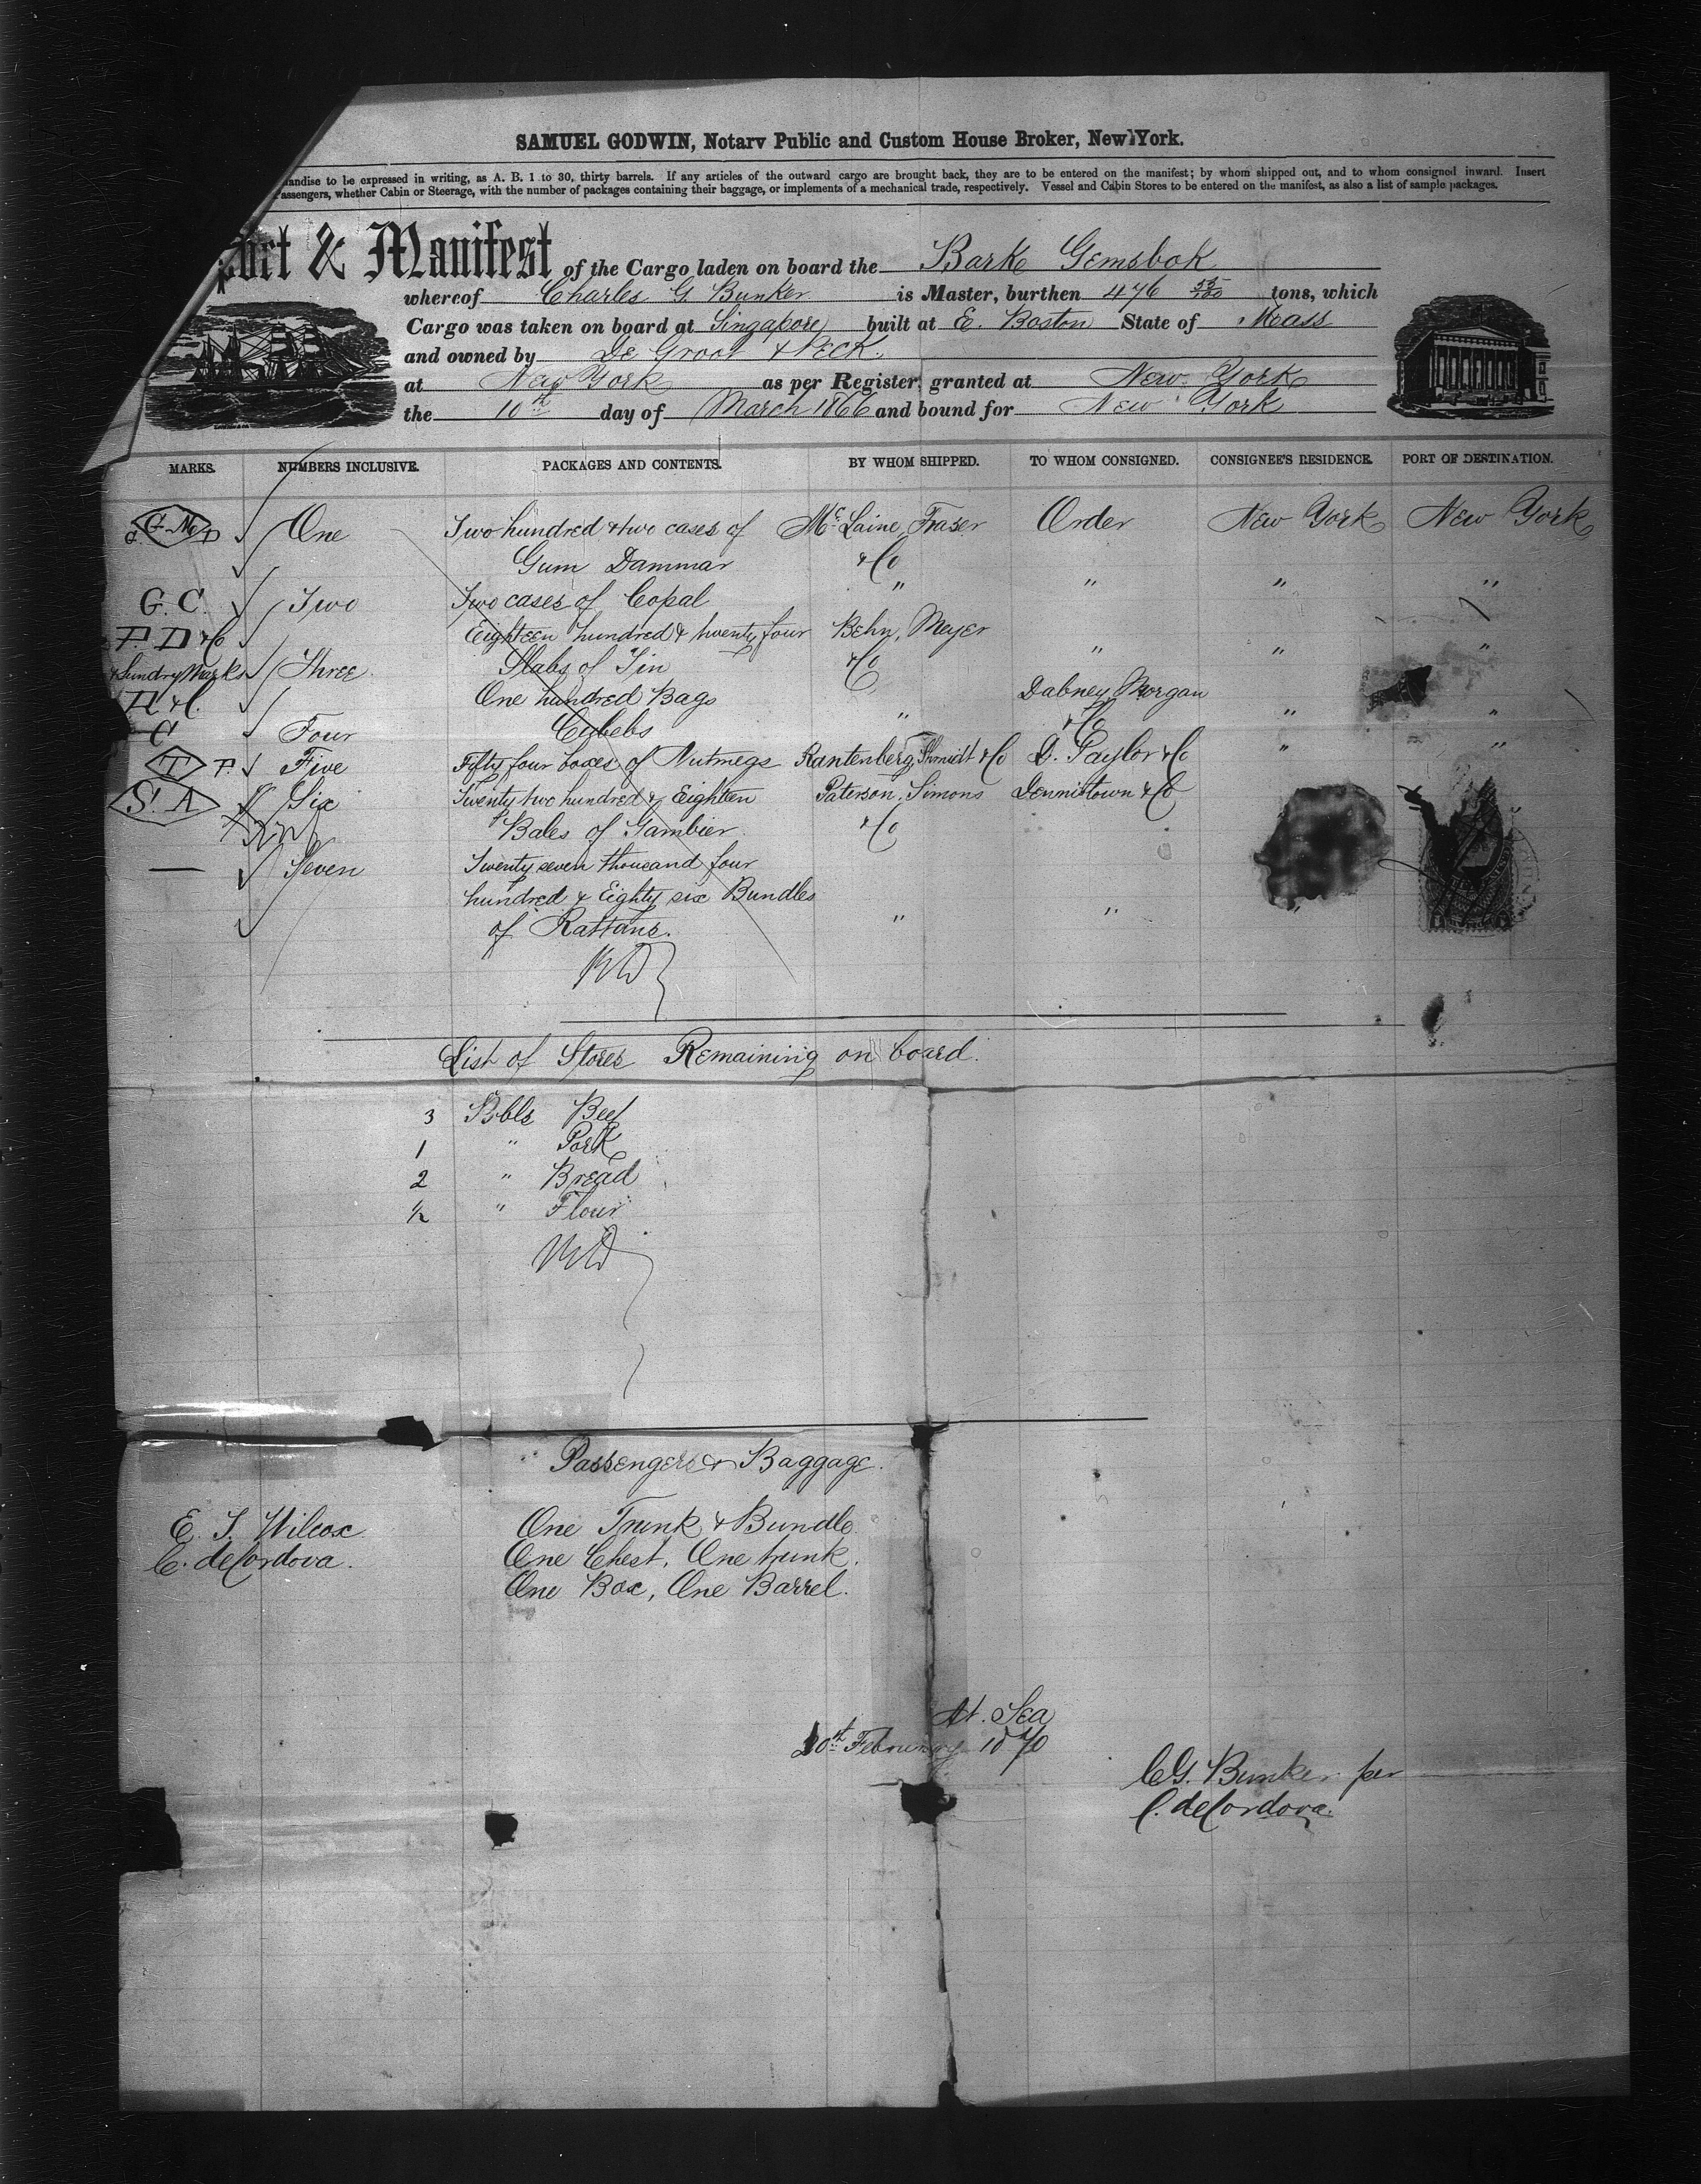 SAMUEL GODWIN, Notary Public and Custom House Broker, New York.
andise to be expressed in writing, as A. B. 1 to 30, thirty barrels. If any articles of the outward cargo are brought back, they are to be entered on the manifest; by whom shipped out, and to whom consigned inward. Insert
assengers, whether Cabin or Steerage, with the number of packages containing their baggage, or implements of a mechanical trade, respectively. Vessel and Cabin Stores to be entered on the manifest, as also a list of sample packages.
port & Manifest of the Cargo laden on board the Bark Gemsbok
whereof Charles G Bunker is Master, burthen 476 tons, which
Cargo was taken on board at Singapore built at E. Boston State of Mass
and owned by De Groot & Peck.
at New York as per Register, granted at New York
the 10th day of March 1866 and bound for New York
MARKS. NUMBERS INCLUSIVE. PACKAGES AND CONTENTS. BY WHOM SHIPPED. TO WHOM CONSIGNED. CONSIGNEE'S RESIDENCE. PORT OF DESTINATION.
One Two hundred & two cases of McLaine, Fraser Order New York New York
Gum Dammar & Co
G. C. Two Two cases of Copal " " " "
P. D & Co Eighteen hundred & twenty four Behn, Meyer
& Sundry Marks Three Slabs of Tin & Co " " "
One hundred Bags Dabney Morgan
C Four Cubebs " & Co " "
T P. Five Fifty four boxes of Nutmegs Rautenberg, Shmidt & Co D. Taylor & Co " "
S. A Six Twenty two hundred & Eighteen Paterson, Simons Dennistown & Co
Bales of Gambier & Co
— Seven Twenty seven thousand four
hundred & Eighty six Bundles
of Rattans. " " "
List of Stores Remaining on board.
3 Bbls Beef
1 " Pork
2 " Bread
1/2 " Flour
Passengers & Baggage.
E. T. Wilcox One Trunk & Bundle
C. deCordova. One Chest, One trunk.
One Box, One Barrel.
At Sea
20th February 1870
C G. Bunker per
C. deCordova.